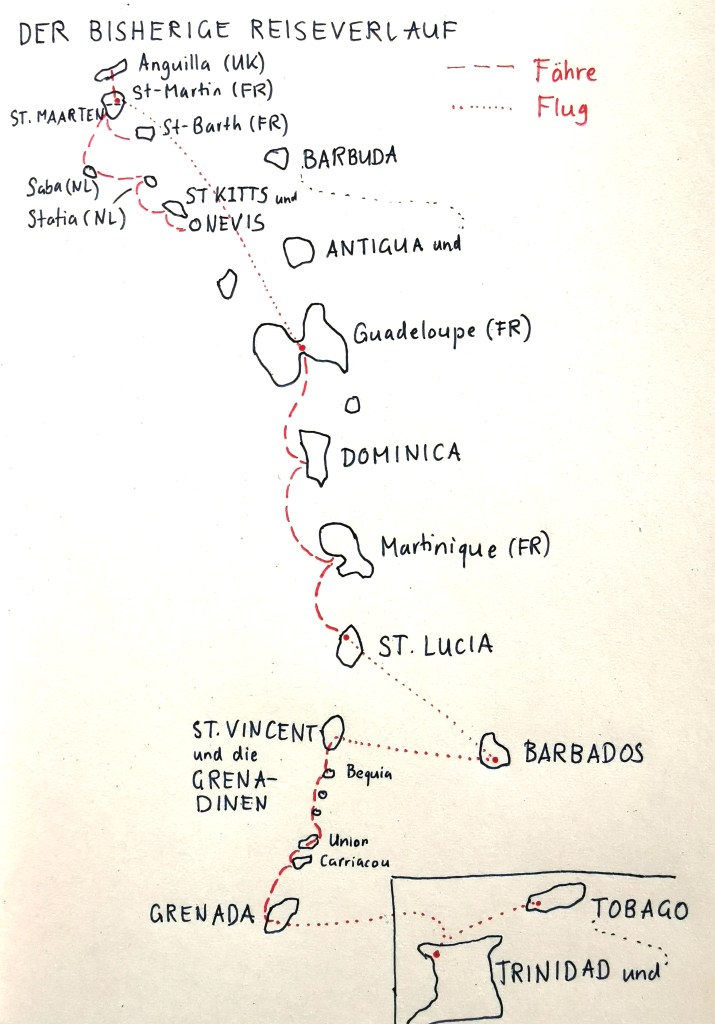 DER BISHERIGE REISEVERLAUF
Anguilla (UK)
St-Martin (FR)
ST. MAARTEN
St-Barth (FR)
Fähre
Flug
BARBUDA
Saba (NL)
Statia (NL)
ST KITTS und
NEVIS
ANTIGUA und
Guadeloupe (FR)
DOMINICA
Martinique (FR)
ST. LUCIA
ST. VINCENT
und die
GRENA-
DINEN
BARBADOS
Bequia
Union
Carriacou
GRENADA
TOBAGO
TRINIDAD und